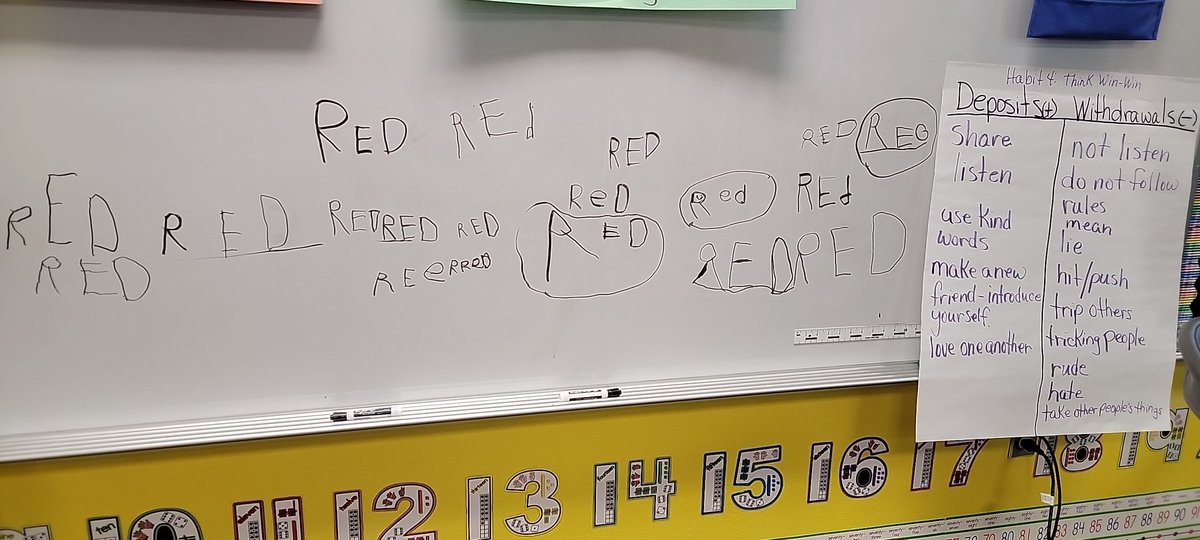 RED REd
RED
RED REG
RED
RED
RED
REDRED
RED
REeRRED
ReD
RED
Red
REd
REDRED
Habit 4: Think Win-Win
Deposits(+)
Share
listen
use kind
words
make a new
friend-introduce
yourself.
love one another
Withdrawals(-)
not listen
do not follow
rules
mean
lie
hit/push
trip others
tricking people
rude
hate
take other people's things
10 11 12 13 14 15 16 17 18 19
80 81 82 83 84 85 86 87 88 89 90